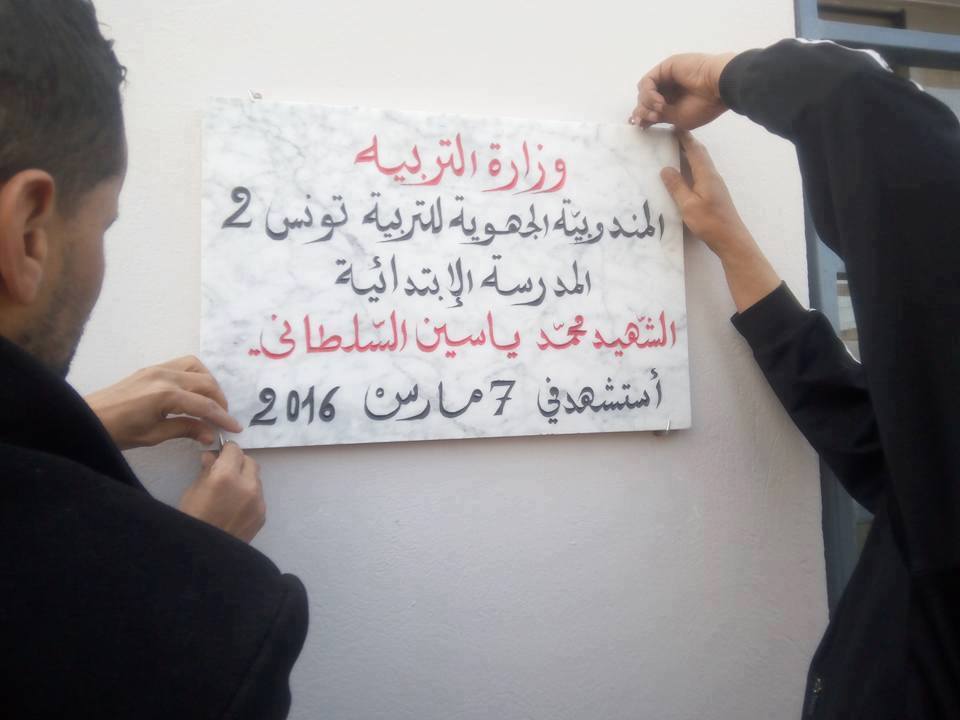 وزارة التربيه
المندوبيّة الجهوية للتربية تونس 2
المدرسة الإبتدائية
الشّهيد محمّد ياسين السّلطاني
أستشهد في 7 مارس 2016